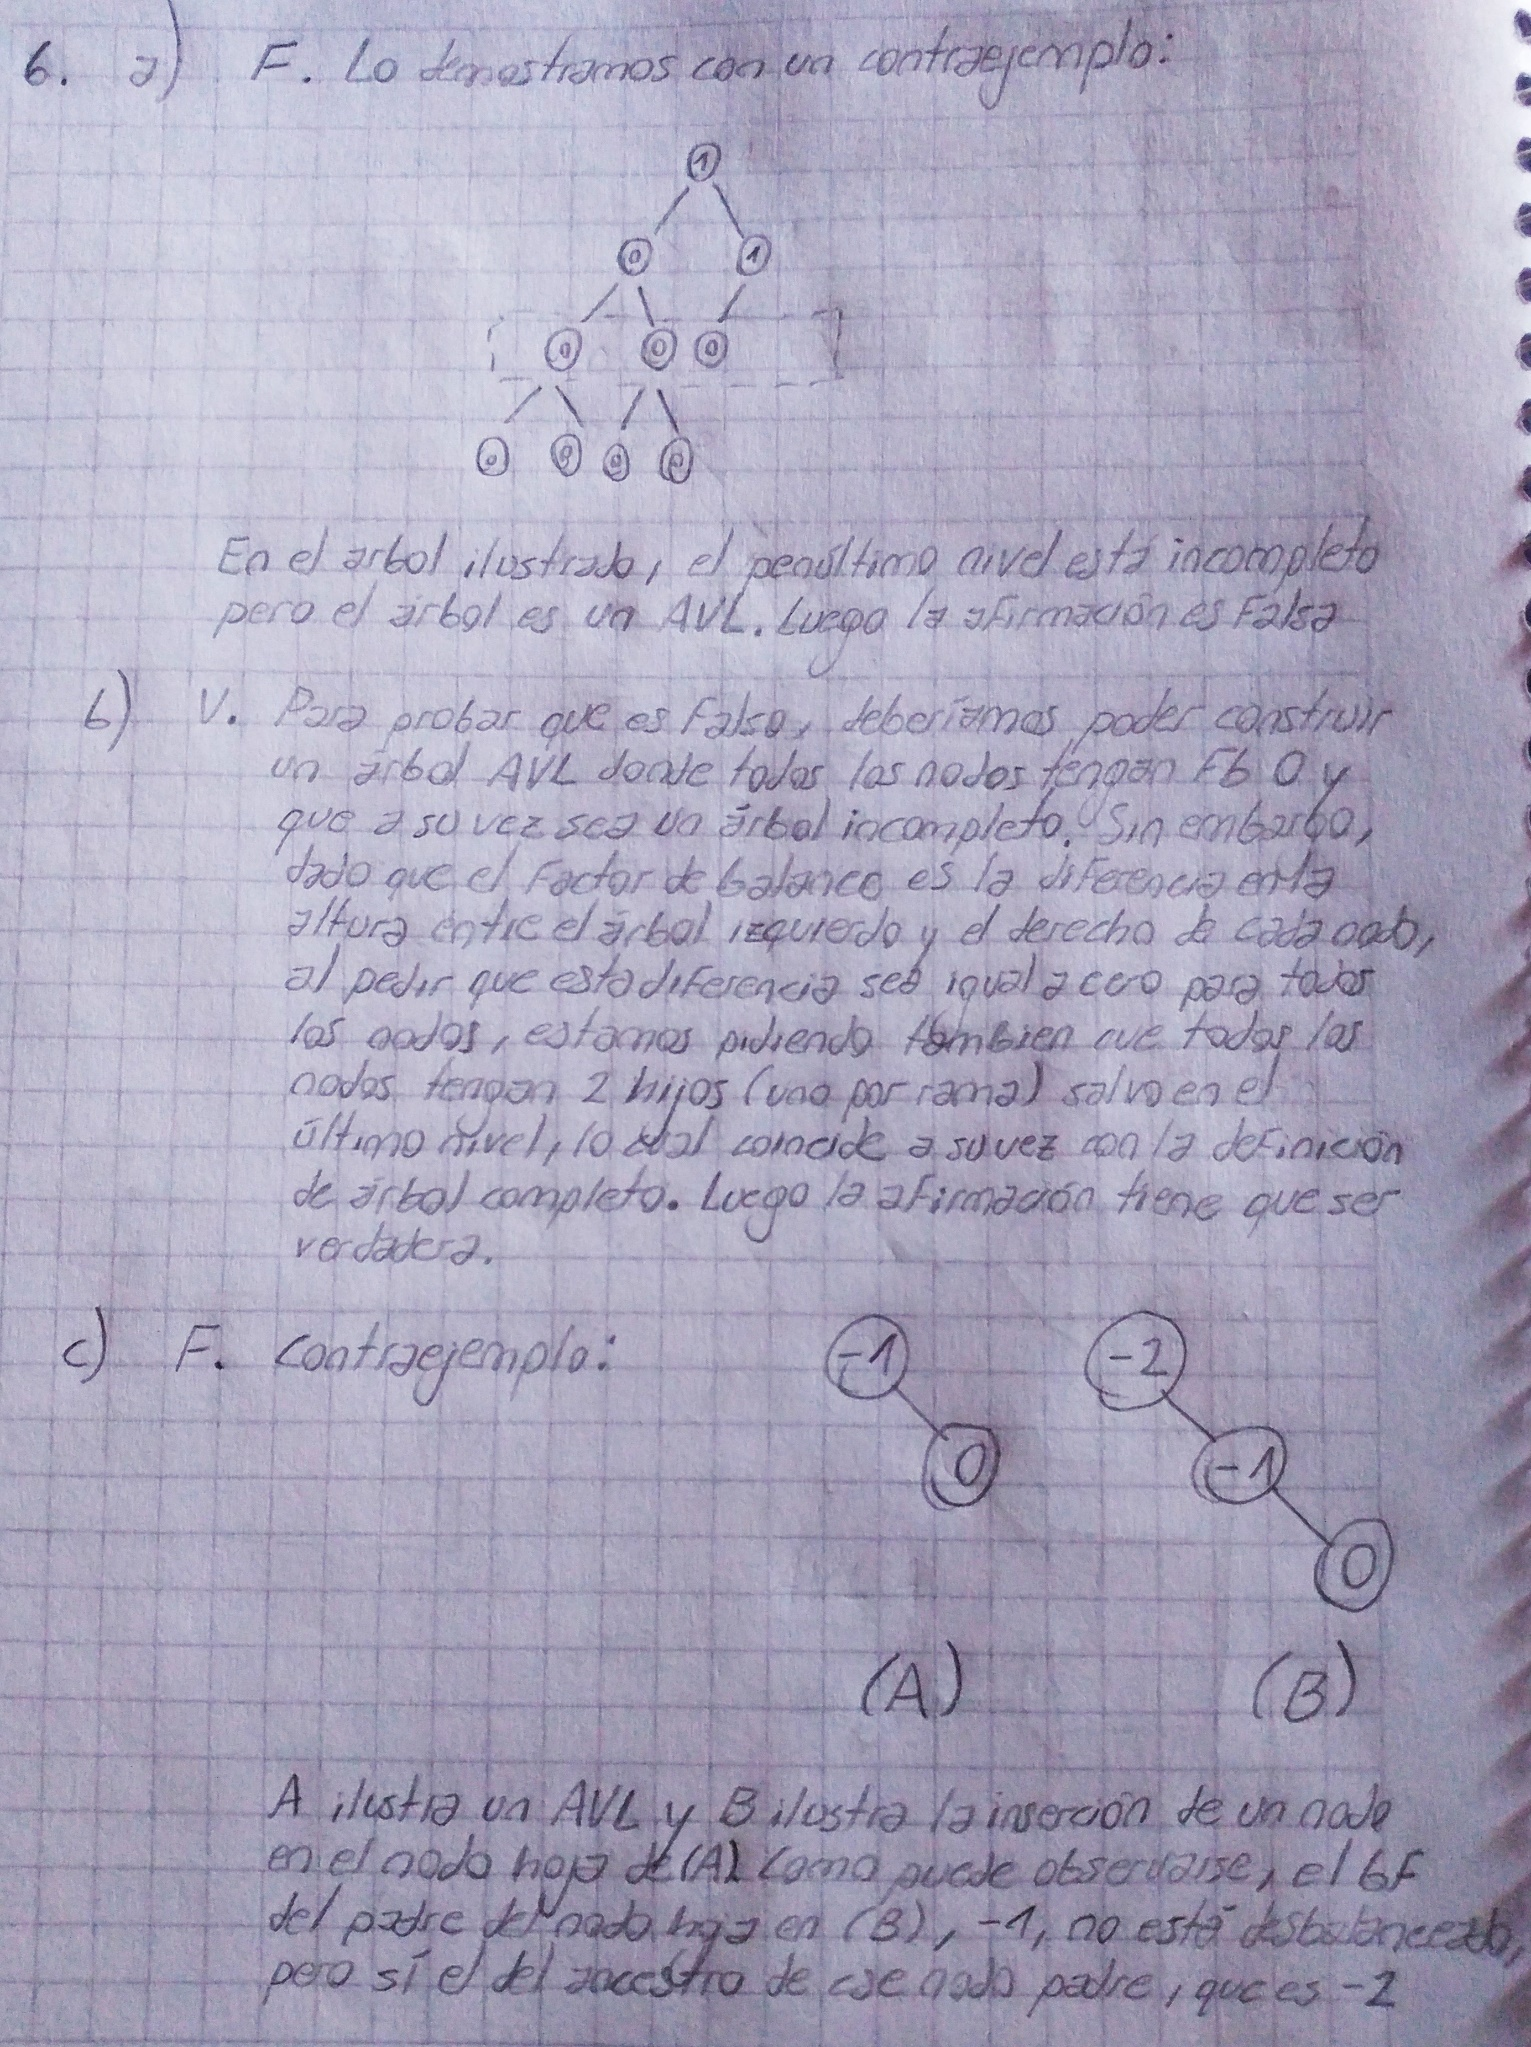 6. a) F. Lo demostramos con un contraejemplo:
1
0 1
0 0 0
0 0 0 0
En el arbol ilustrado, el penúltimo nivel está incompleto
pero el árbol es un AVL. Luego la afirmación es Falsa
b) V. Para probar que es Falso, deberíamos poder construir
un árbol AVL donde todos los nodos tengan Fb 0 y
que a su vez sea un árbol incompleto. Sin embargo,
dado que el Factor de balance es la diferencia en la
altura entre el árbol izquierdo y el derecho de cada nodo,
al pedir que esta diferencia sea igual a cero para todos
los nodos, estamos pidiendo tambien que todos los
nodos tengan 2 hijos (uno por rama) salvo en el
último nivel, lo cual coincide a su vez con la definición
de árbol completo. Luego la afirmación tiene que ser
verdadera.
c) F. Contraejemplo:
-1 -2
0 -1
0
(A) (B)
A ilustra un AVL y B ilustra la inserción de un nodo
en el nodo hoja de (A). Como puede observarse, el bF
del padre del nodo hoja en (B), -1, no está desbalanceado,
pero sí el del ancestro de ese nodo padre, que es -2